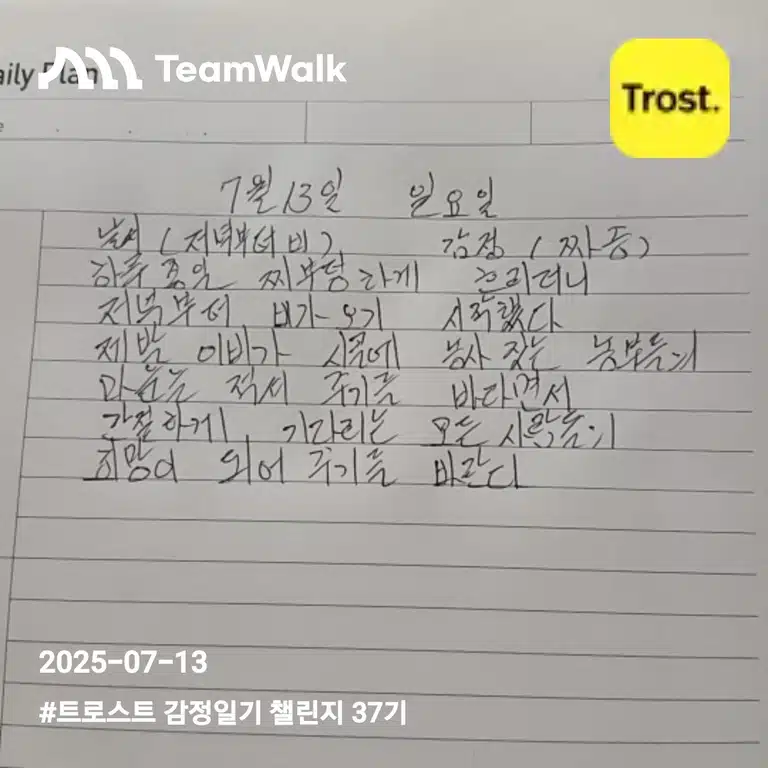 aily Plan
TeamWalk
Trost.
e
7월 13일 일요일
날씨 (저녁부터 비) 감정 (짜증)
하루종일 찌부텅하게 흐리더니
저녁부터 비가 오기 시작했다
제발 이비가 시골에 농사 짓는 농부들의
마음을 적셔 주기를 바라면서
간절하게 기다리는 모든 사람들의
희망이 되어 주기를 바란다
2025-07-13
#트로스트 감정일기 챌린지 37기